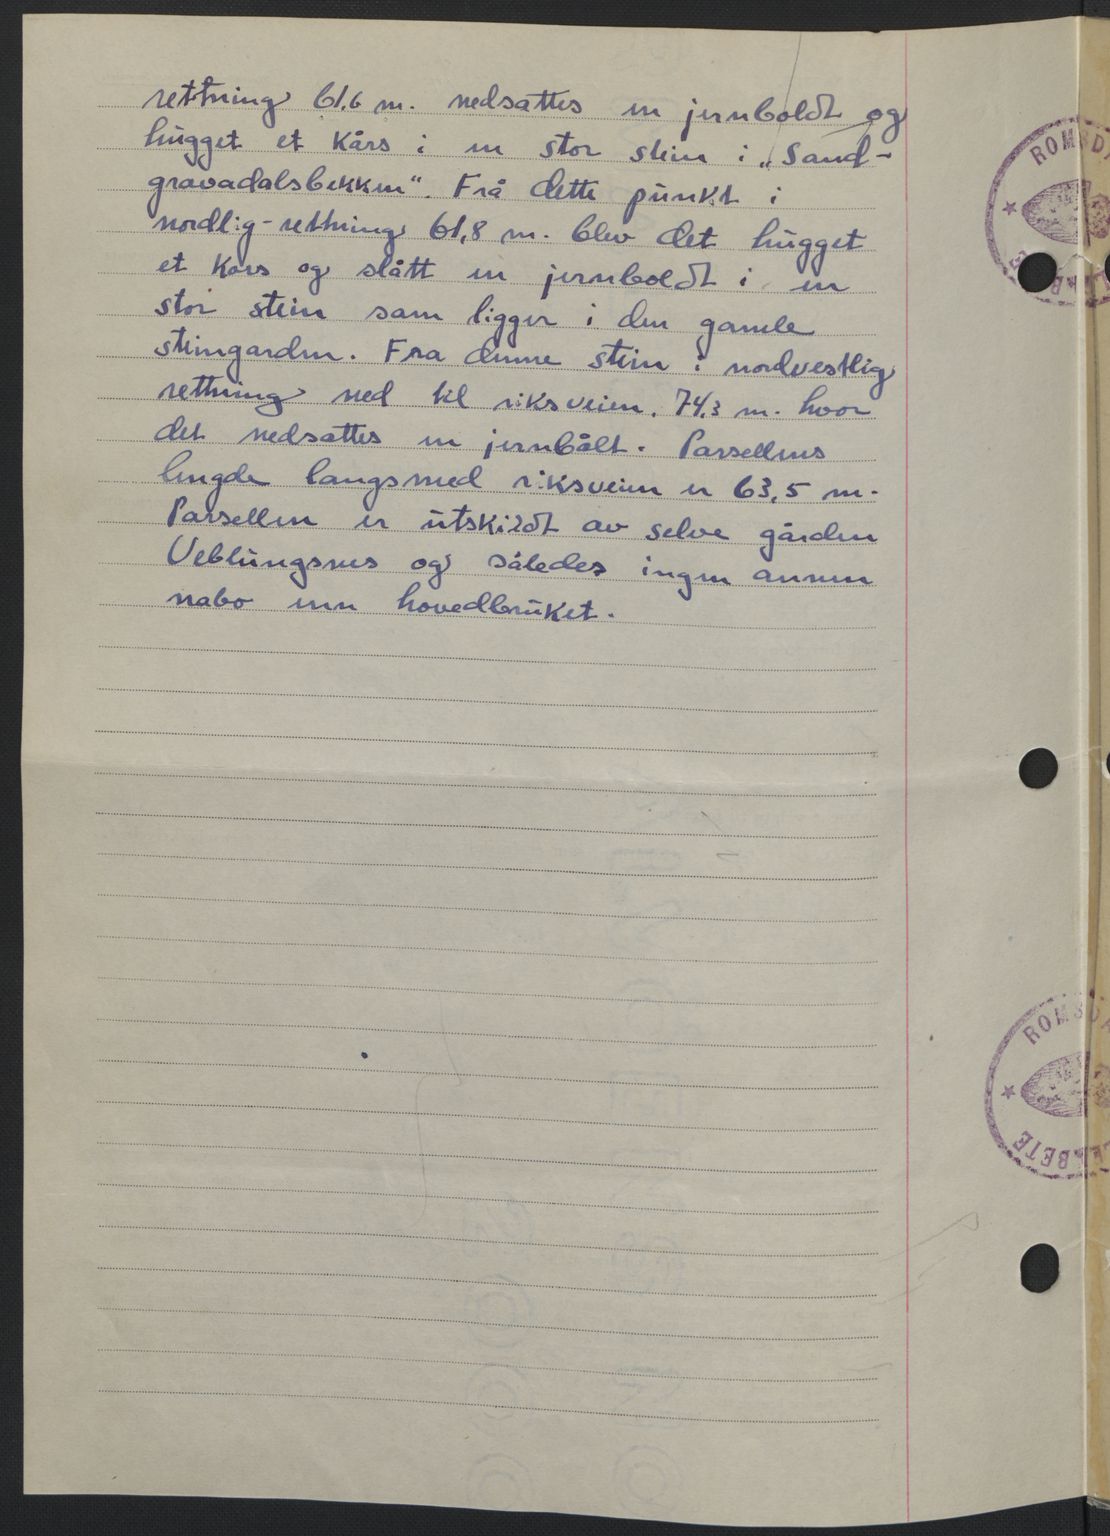 rettning 61,6 m. nedsattes en jernboldt og
hugget et kårs i en stor stein i „Sand-
gravadalsbekken“. Frå dette punkt i
nordlig-rettning 61,8 m. blev det hugget
et kors og slått en jernboldt i en
stor stein som ligger i den gamle
steingarden. Fra denne stein i nordvestlig
rettning ned til riksveien. 74,3 m. hvor
det nedsattes en jernbålt. Parsellens
lengde langsmed riksveien er 63,5 m.
Parsellen er utskildt av selve gården
Veblungsnes og således ingen annen
nabo enn hovedbruket.
ROMSDA
ROMSDA
BETE